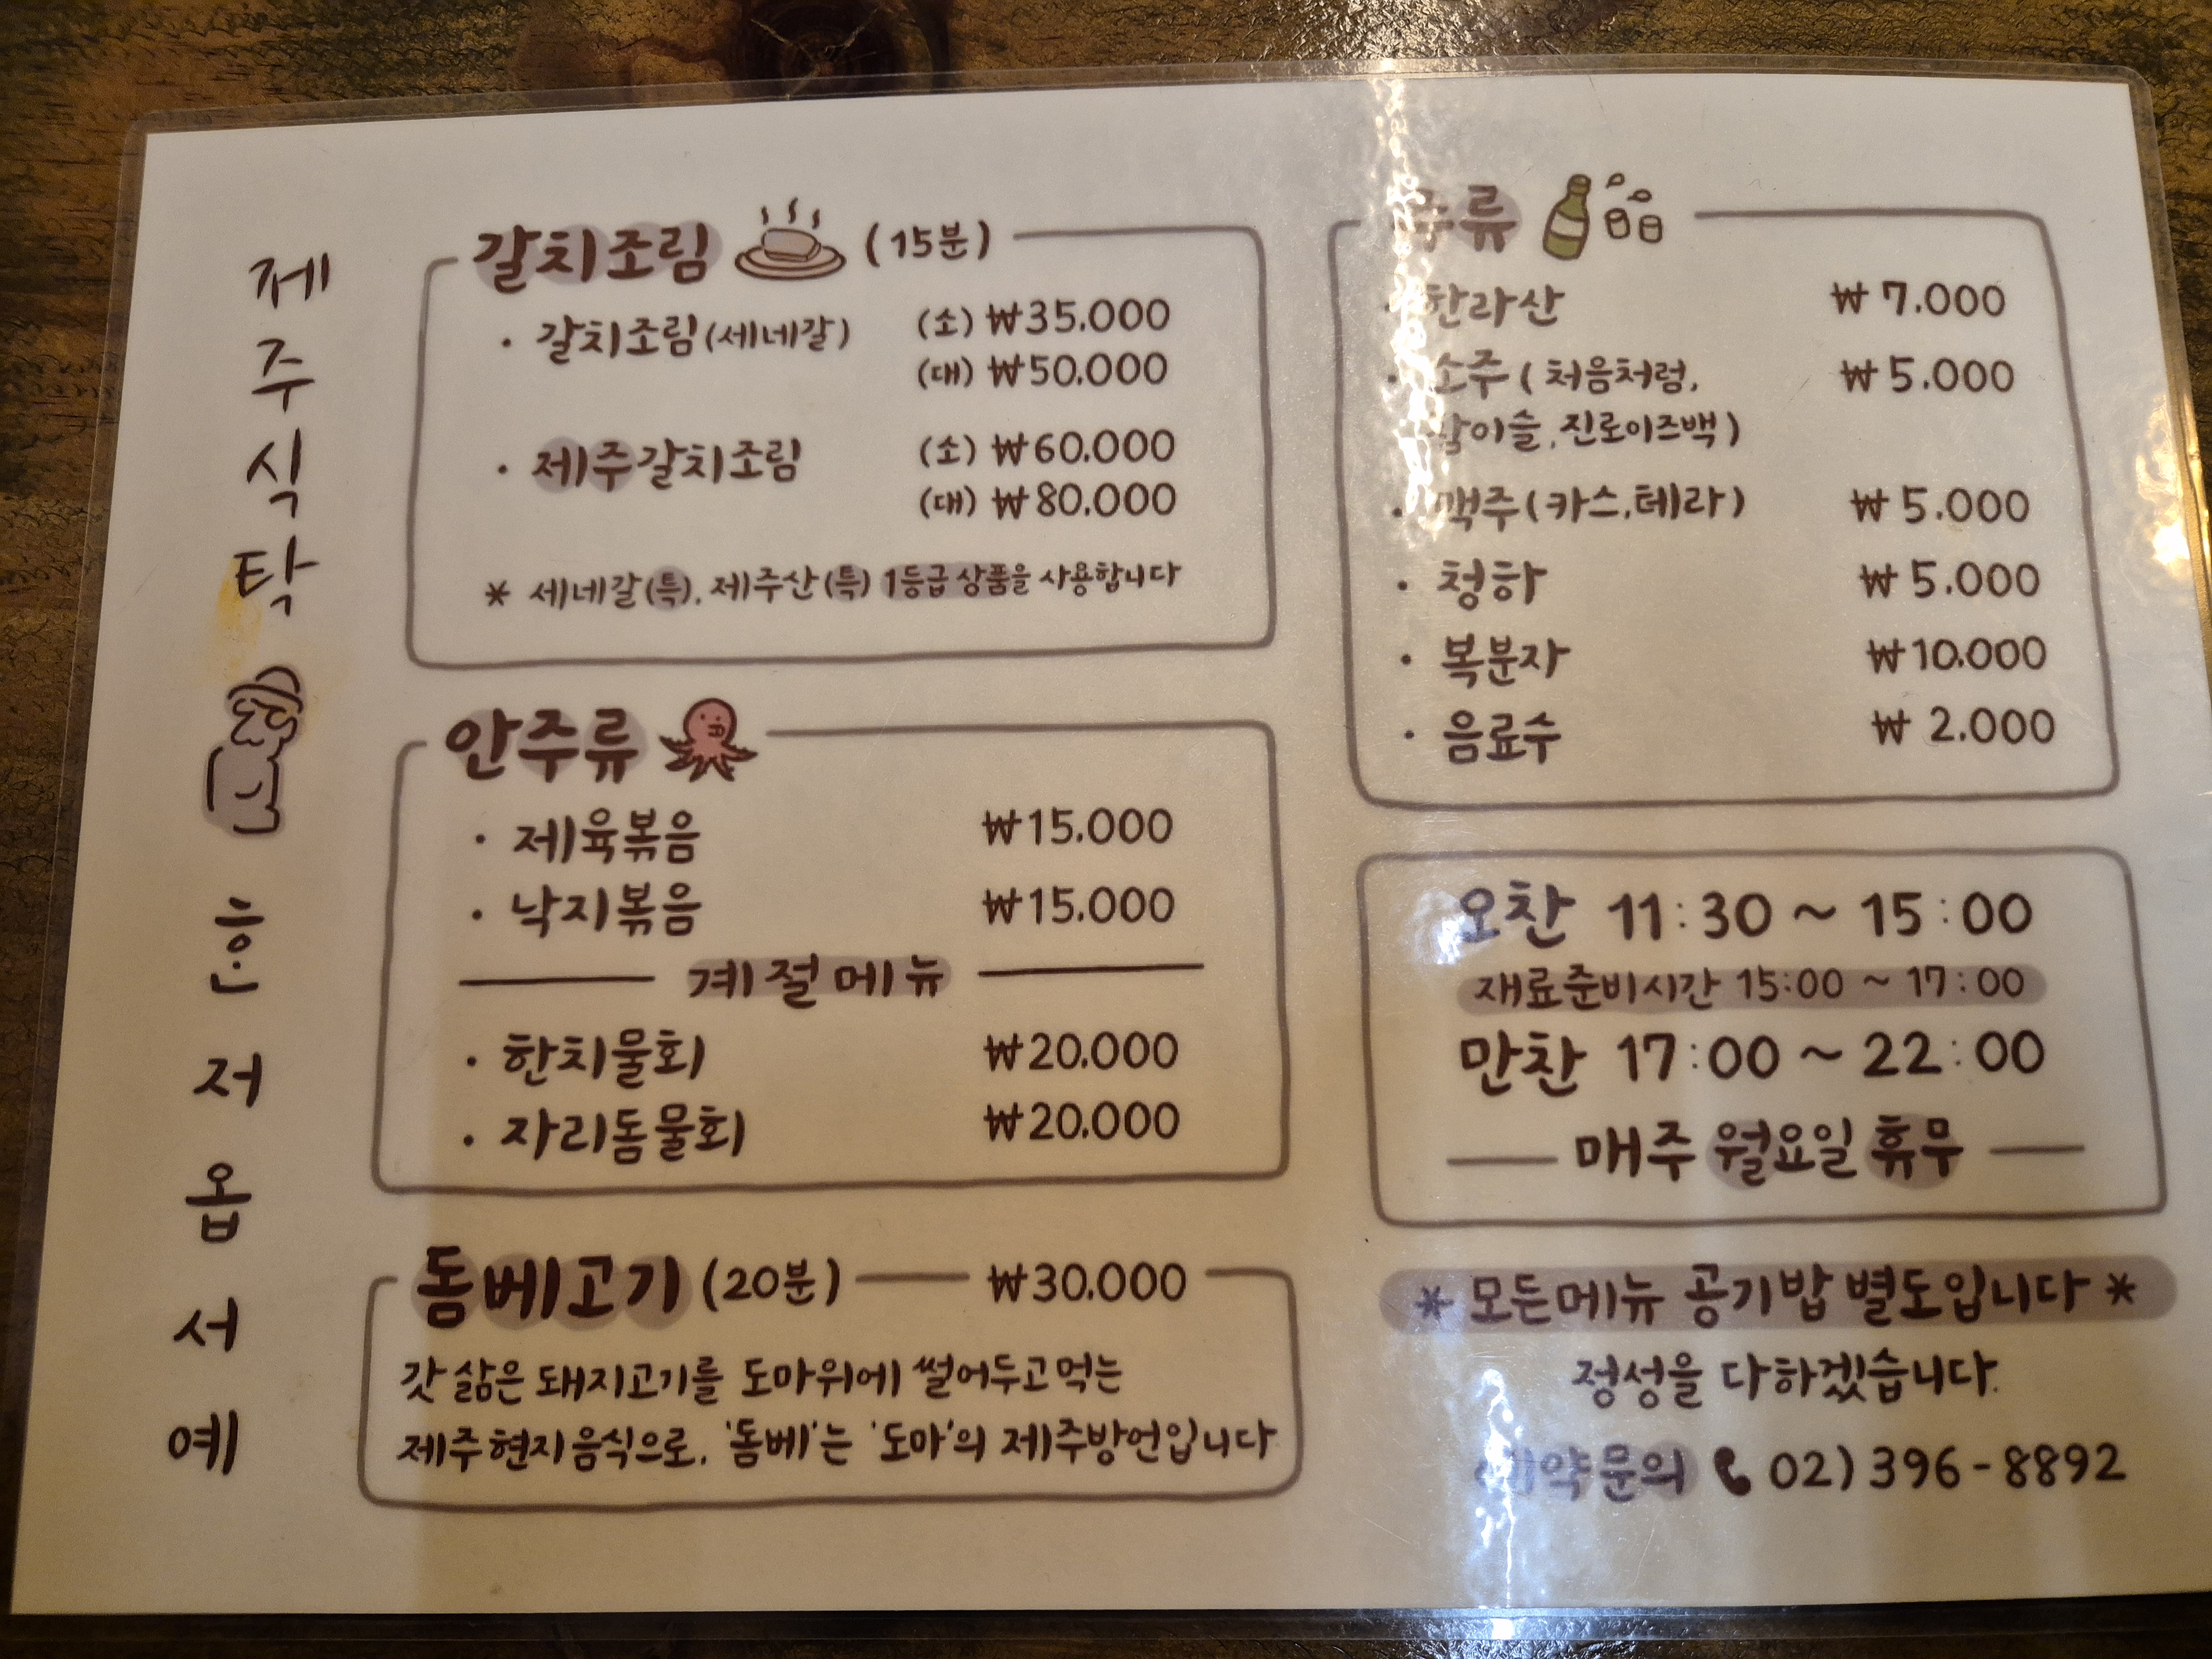 제주식탁
혼저옵서예
갈치조림 (15분)
· 갈치조림(세네갈) (소) ₩35.000
(대) ₩50.000
· 제주갈치조림 (소) ₩60.000
(대) ₩80.000
* 세네갈(특), 제주산(특) 1등급 상품을 사용합니다
안주류
· 제육볶음 ₩15.000
· 낙지볶음 ₩15.000
계절메뉴
· 한치물회 ₩20.000
· 자리돔물회 ₩20.000
돔베고기 (20분) ₩30.000
갓 삶은 돼지고기를 도마위에 썰어두고 먹는
제주현지음식으로, '돔베'는 '도마'의 제주방언입니다
주류
· 한라산 ₩7.000
· 소주 ( 처음처럼, ₩5.000
참이슬, 진로이즈백 )
· 맥주 (카스, 테라) ₩5.000
· 청하 ₩5.000
· 복분자 ₩10.000
· 음료수 ₩2.000
오찬 11:30 ~ 15:00
재료준비시간 15:00 ~ 17:00
만찬 17:00 ~ 22:00
매주 월요일 휴무
* 모든메뉴 공기밥 별도입니다 *
정성을 다하겠습니다.
예약문의 02) 396-8892